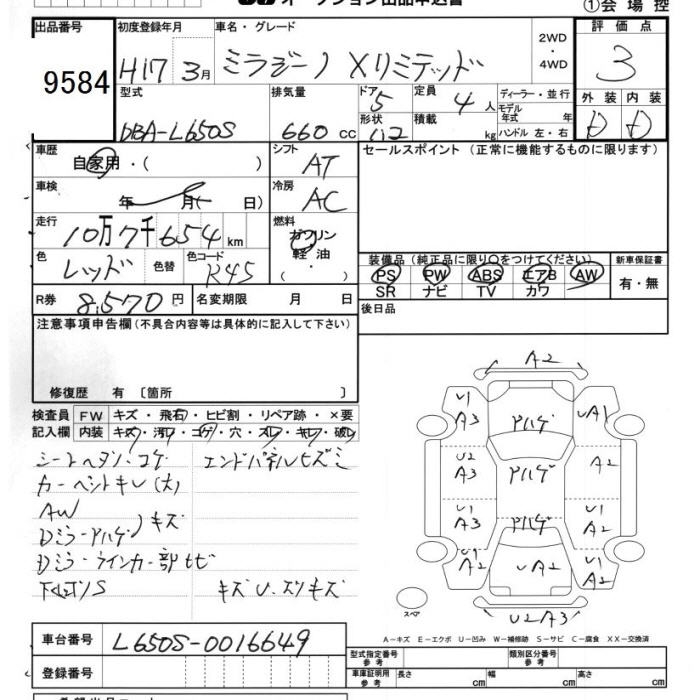 オークション出品申込書
①会場控
出品番号 9584
初度登録年月 H17 3月
車名・グレード ミラジーノ Xリミテッド
2WD・4WD
評価点 3
型式 DBA-L650S
排気量 660 cc
ドア 5
形状
定員 4 人
積載 kg
ディーラー・並行
モデル年式 年
ハンドル 左・右
外装 D
内装 D
車歴 自家用・( )
シフト AT
車検 年 月( 日)
冷房 AC
走行 10万7千654 km
燃料 ガソリン 軽油・
色 レッド 色替
色コード R45
R券 8,570 円
名変期限 月 日
セールスポイント (正常に機能するものに限ります)
装備品(純正品に限り○をつけてください)
PS PW ABS エアB AW
SR ナビ TV カワ
新車保証書 有・無
後日品
注意事項申告欄(不具合内容等は具体的に記入して下さい)
修復歴 有 〔箇所 〕
検査員記入欄
FW キズ・飛石・ヒビ割・リペア跡・×要
内装 キズ・汚レ・コゲ・穴・スレ・キレ・破レ
シートヘタリ・コゲ
エンドパネルヒズミ
カーペットキレ(大)
AW
Dミラーハゲ
キズ
Dミラーウインカー部ヒビ
下廻リS
キズU・スリキズ
A2
U1 A3
ハゲ
UA1
U2 A3
ハゲ
A2
U1 A3
ハゲ
U1 A2
U1 A2
UA2
U1 A2
U2A3
スペア
A-キズ E-エクボ U-凹み W-補修跡 S-サビ C-腐食 XX-交換済
車台番号 L650S-0016649
登録番号
型式指定番号 参考
類別区分番号 参考
車庫証明用 参考 長さ cm 幅 cm 高さ cm